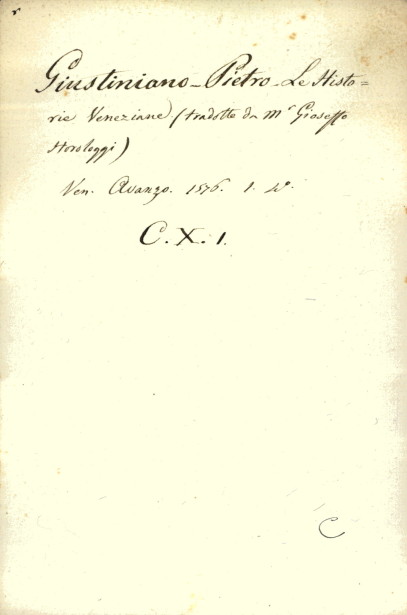 Giustiniano - Pietro - Le Histo=
rie Veneziane (tradotte da M.r Gioseffo
Horoleggi)
Ven. Avanzo. 1576. 1. 4°.
C. X. 1.
C